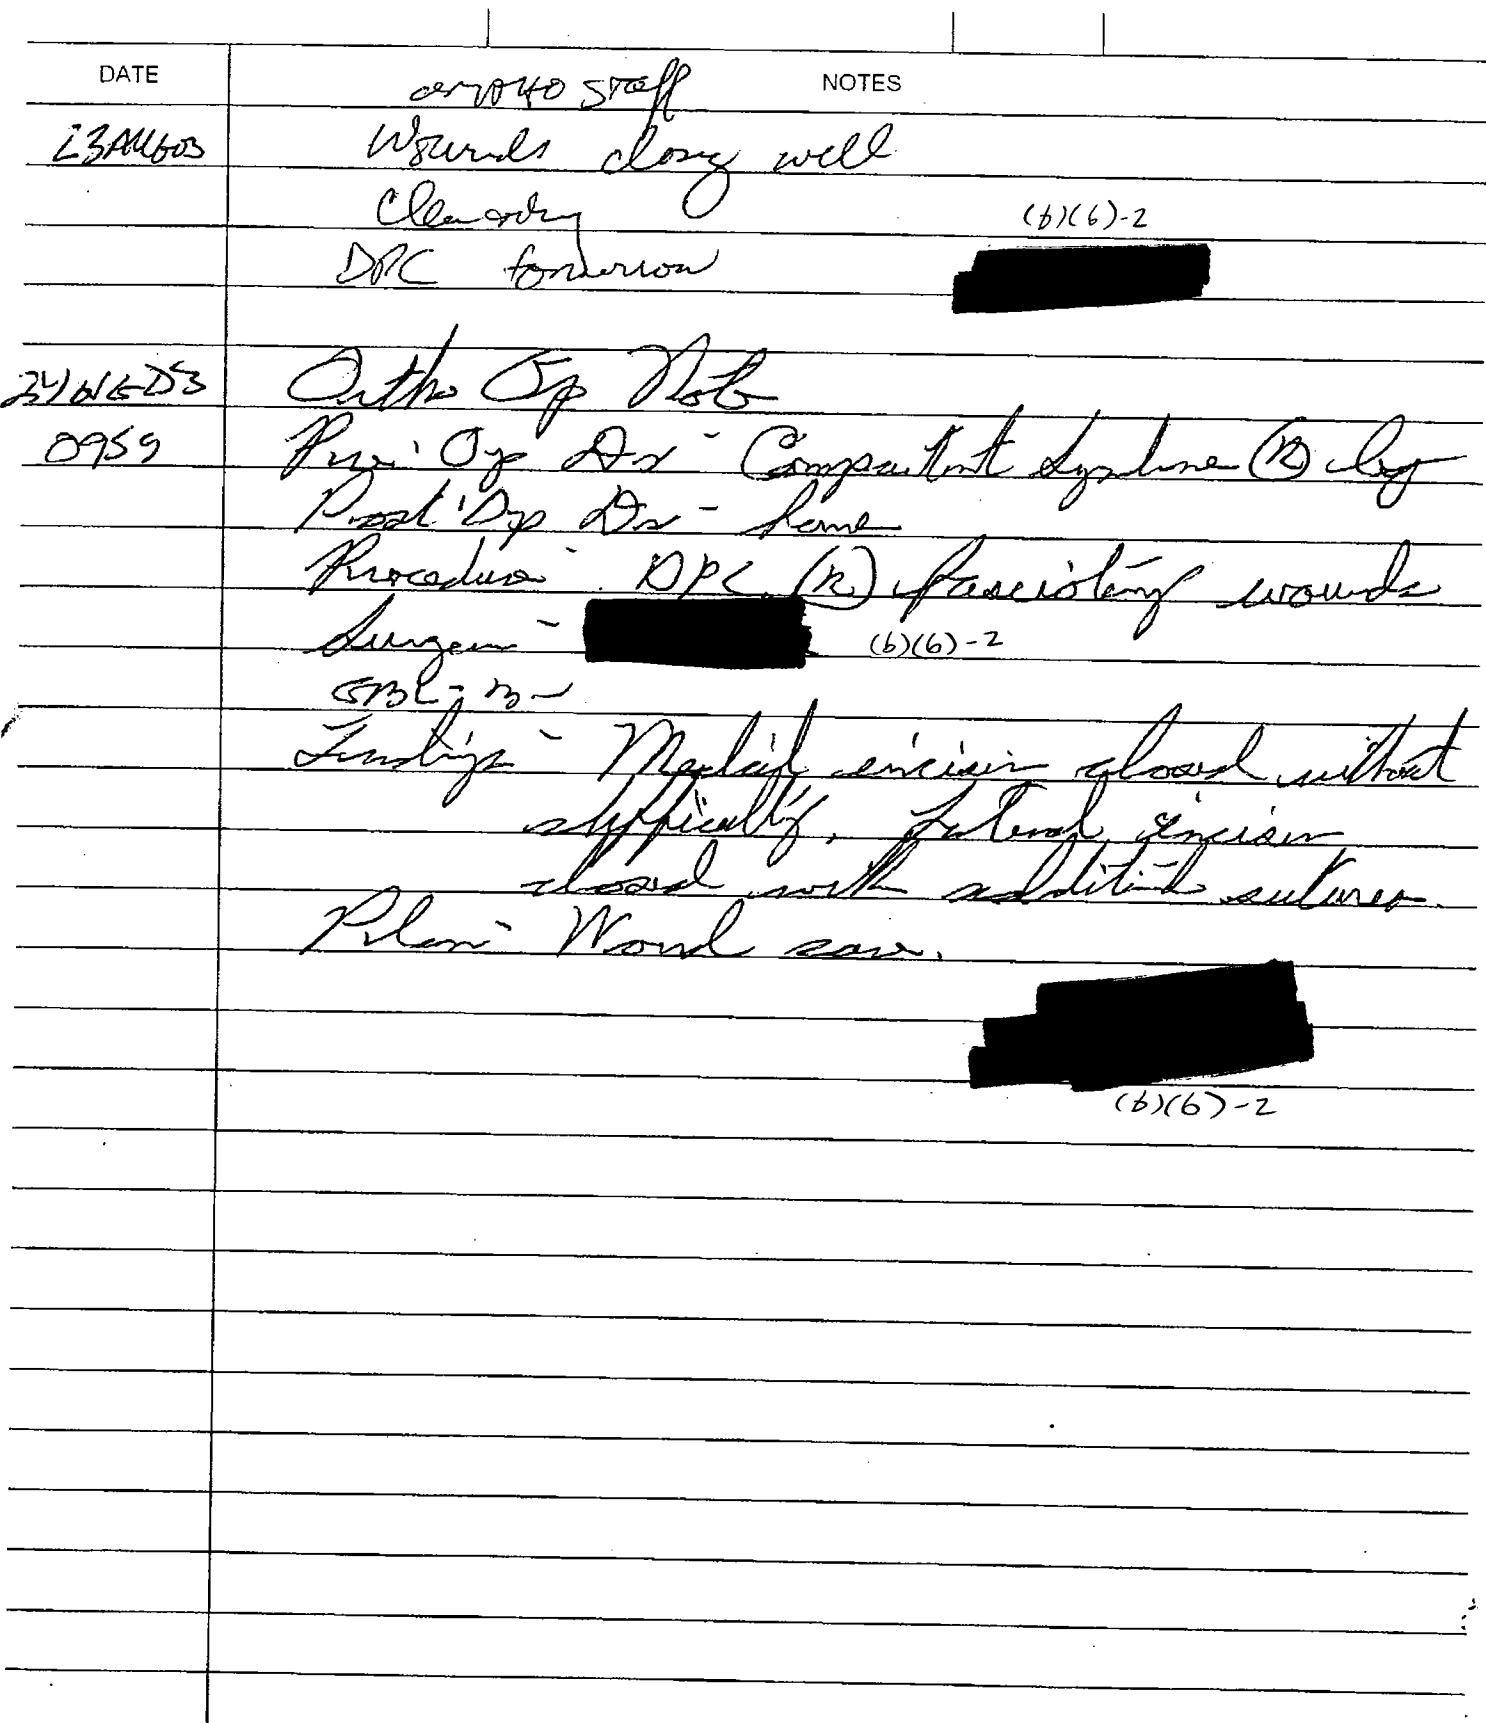 DATE NOTES
ORTHO Staff
23AUG03 Wounds doing well
Clean & dry (b)(6)-2
DPC tomorrow
24AUG03 Ortho Op Note
0959 Pre-Op Dx - Compartment Syndrome (R) leg
Post Op Dx - Same
Procedure - DPC (R) fasciotomy wounds
Surgeon - (b)(6)-2
EBL -
Findings - Medial incision closed without
difficulty. Lateral incision
closed with additional sutures.
Plan - Wound care.
(b)(6)-2